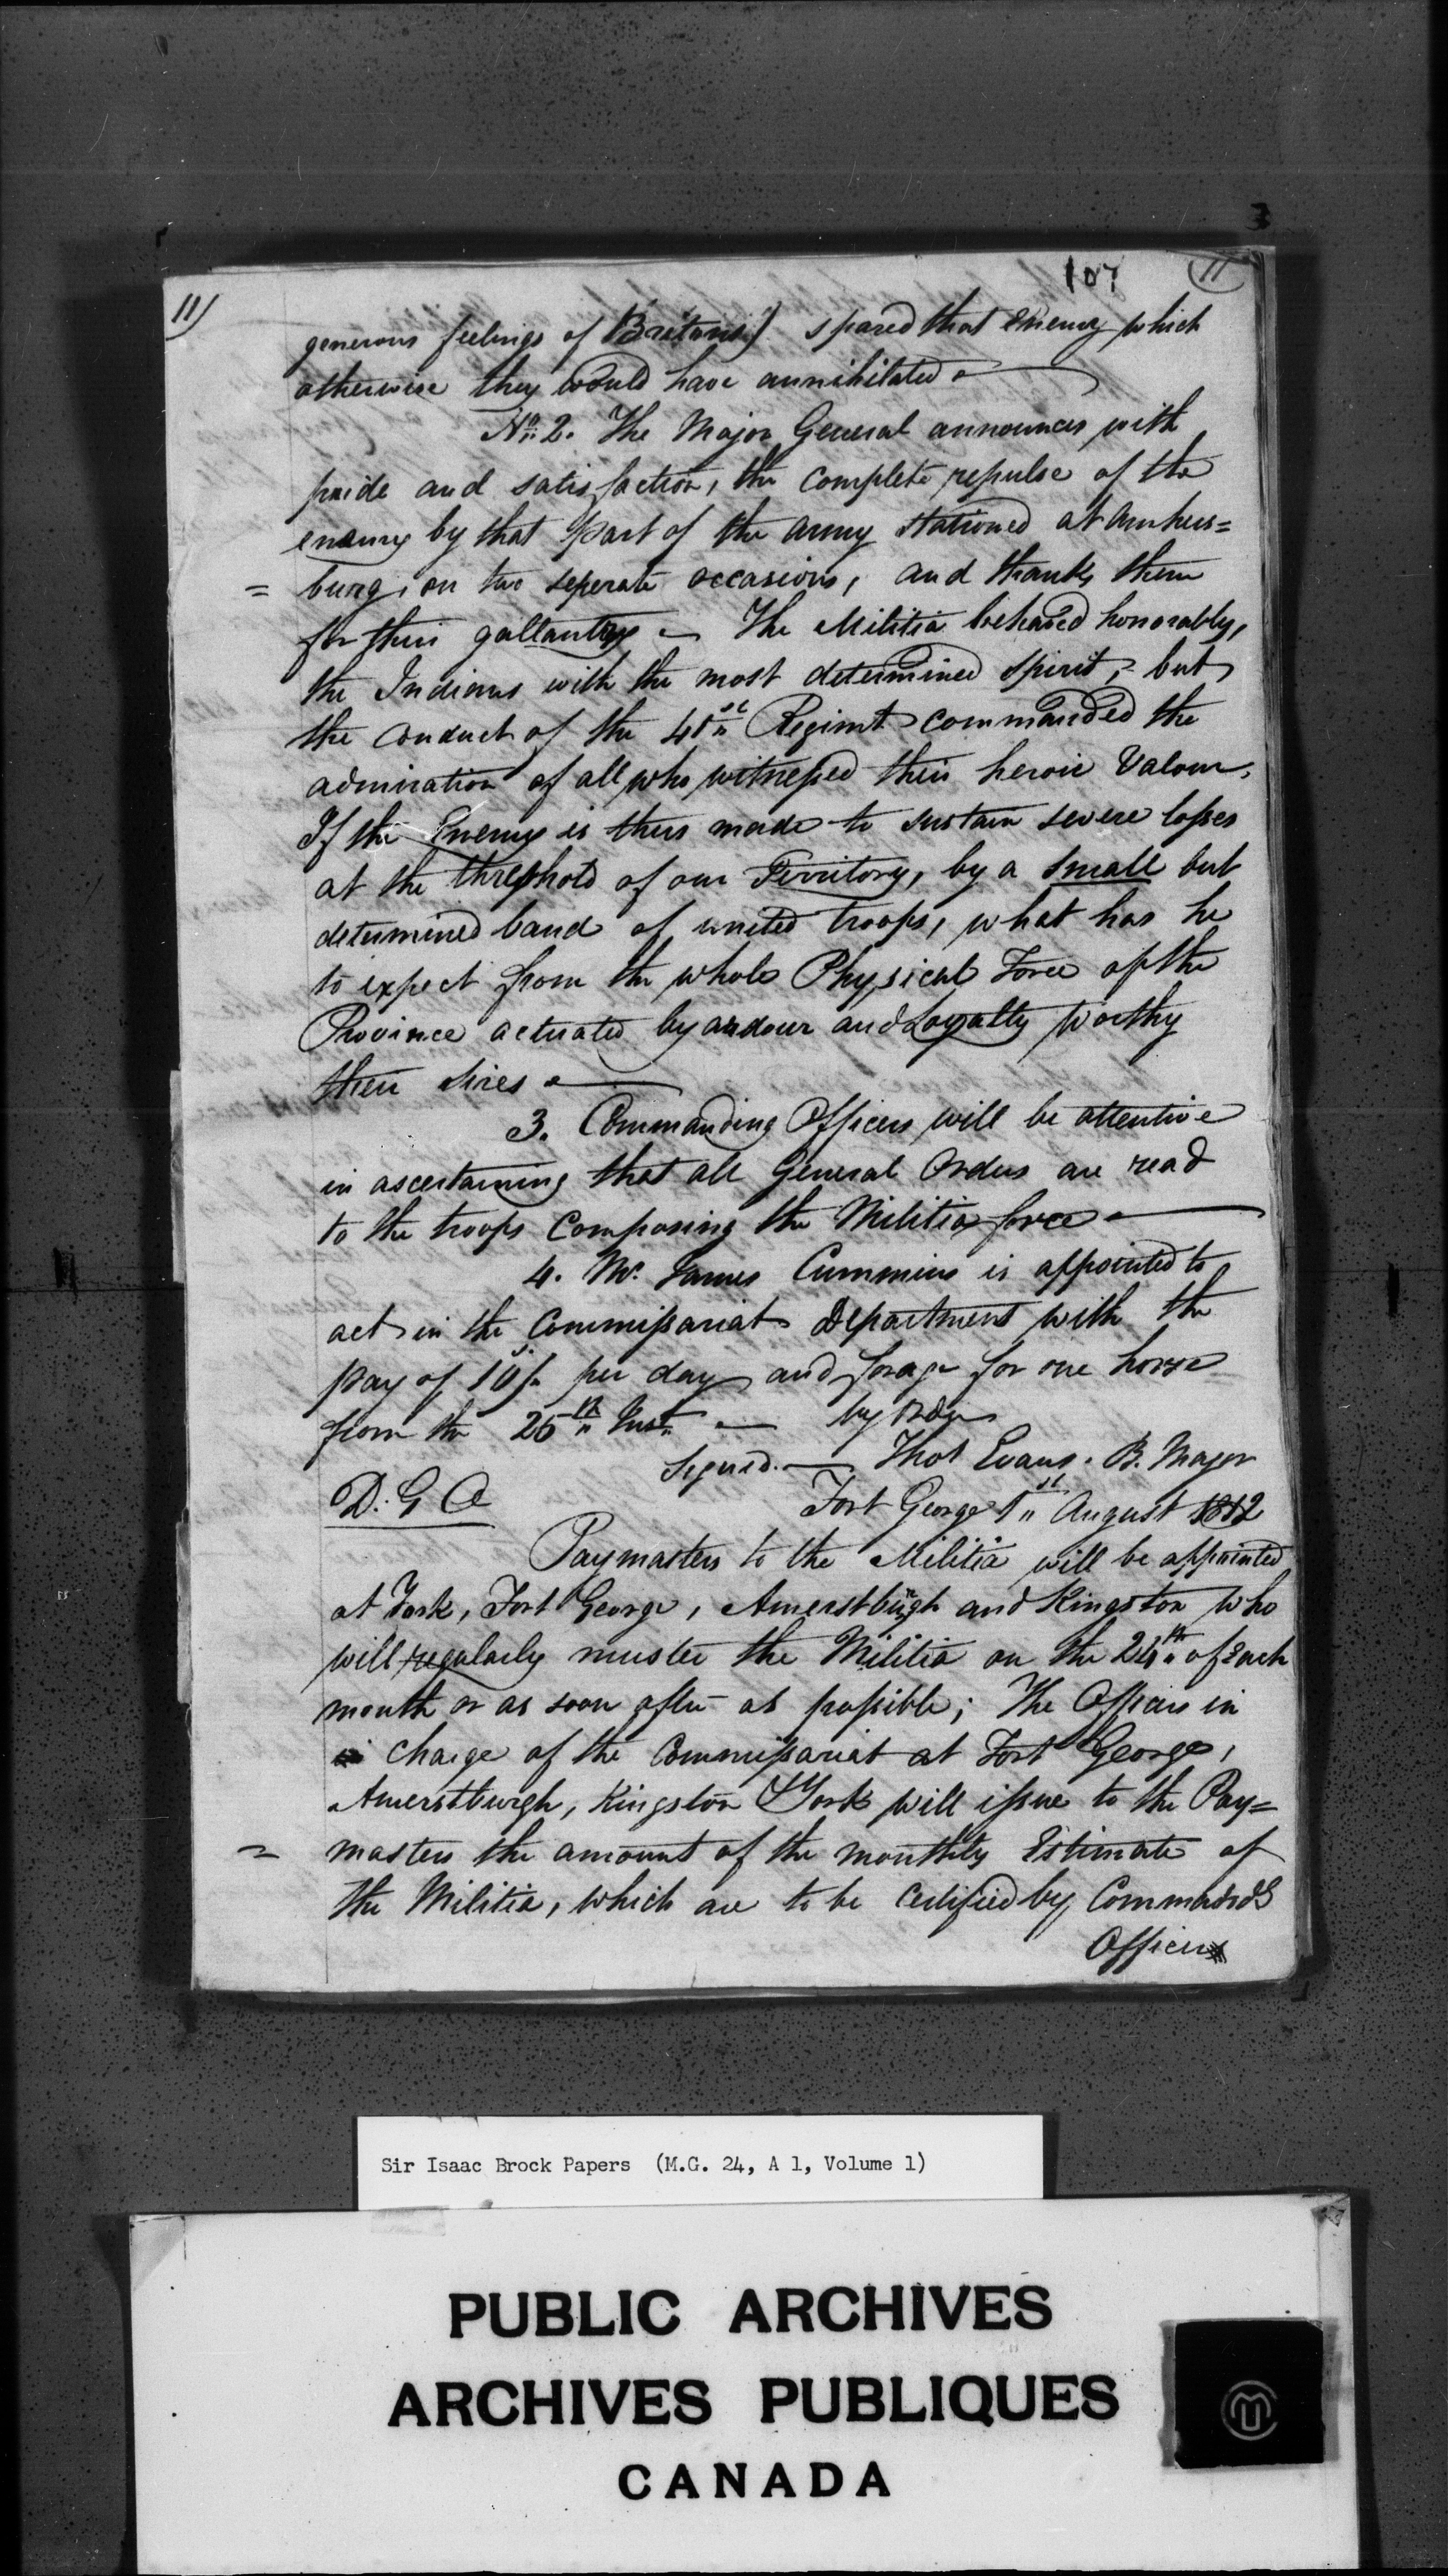 3
107
11
11)
generous feelings of Britons) spared that enemy which
otherwise they would have annihilated
No. 2. The Major General announces with
pride and satisfaction, the complete repulse of the
enemy by that part of the army stationed at Amhers=
= burg, on two seperate occasions, and thanks them
for their gallantry — The Militia behaved honorably,
the Indians with the most determined spirit, but
the conduct of the 41st Regimt commanded the
admiration of all who witnessed their heroic Valour.
If the Enemy is thus made to sustain severe losses
at the threshold of our Territory, by a small but
determined band of united troops, what has he
to expect from the whole Physical Force of the
Province actuated by ardour and Loyalty worthy
their sires
3. Commanding Officers will be attentive
in ascertaining that all General Orders are read
to the troops Composing the Militia force
4. Mr. James Cummins is appointed to
act in the Commissariat Department with the
pay of 10/. per day and forage for one horse
from the 25th Inst. — by order
Signed. — Thos Evans. B. Major
D. G O
Fort George 1st August 1812
Paymasters to the Militia will be appointed
at York, Fort George, Amerstburgh and Kingston who
will regularly muster the Militia on the 24th of each
month or as soon after as possible; The Officers in
charge of the Commissariat at Fort George,
Amerstburgh, Kingston & York will issue to the Pay=
= masters the amount of the monthly Estimate of
the Militia, which are to be Certified by Commandg
Officers
Sir Isaac Brock Papers (M.G. 24, A 1, Volume 1)
PUBLIC ARCHIVES
ARCHIVES PUBLIQUES
CANADA